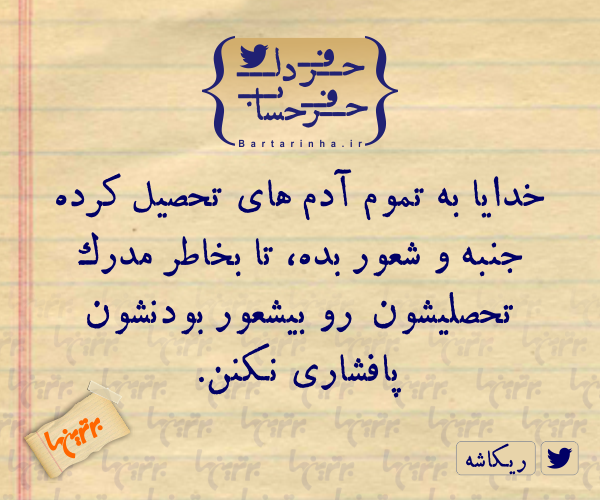 حرف دل
حرف حساب
Bartarinha.ir
خدایا به تموم آدم های تحصیل کرده
جنبه و شعور بده، تا بخاطر مدرك
تحصلیشون رو بیشعور بودنشون
پافشاری نکنن.
برترین‌ها
ریکاشه